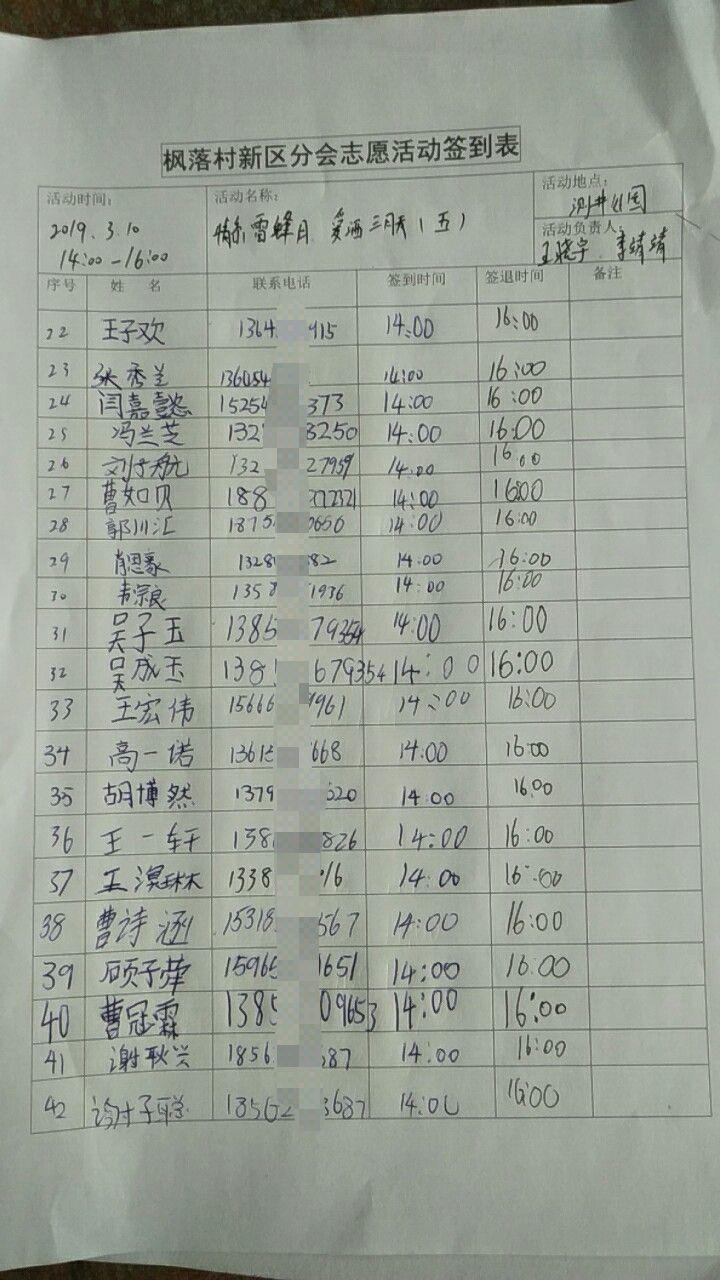 枫落村新区分会志愿活动签到表
活动时间: 活动名称: 活动地点:
2019.3.10 情系雷蜂月 爱洒三月天(五)
14:00-16:00 活动负责人: 王晓宇 李靖靖
序号 姓 名 联系电话 签到时间 签退时间 备注
22 王子欢 1364 915 14:00 16:00
23 张秀兰 136054 14:00 16:00
24 闫嘉懿 15254 373 14:00 16:00
25 冯兰芝 132 3250 14:00 16:00
26 刘子航 132 27959 14:00 16:00
27 曹如贝 188 14:00 16:00
28 郭川汇 1875 0650 14:00 16:00
29 肖恩豪 1328 82 14:00 16:00
30 韦宗良 1358 1936 14:00 16:00
31 吴子玉 1385 79354 14:00 16:00
32 吴成玉 138 679354 14:00 16:00
33 王宏伟 15666 9961 14:00 16:00
34 高一诺 13615 668 14:00 16:00
35 胡博然 1379 520 14:00 16:00
36 王一轩 138 826 14:00 16:00
37 王淏琳 1338 16 14:00 16:00
38 曹诗涵 15318 567 14:00 16:00
39 顾子萍 15965 1651 14:00 16:00
40 曹冠霖 1385 09653 14:00 16:00
41 谢耿兴 1856 687 14:00 16:00
42 谢子聪 18562 3687 14:00 16:00